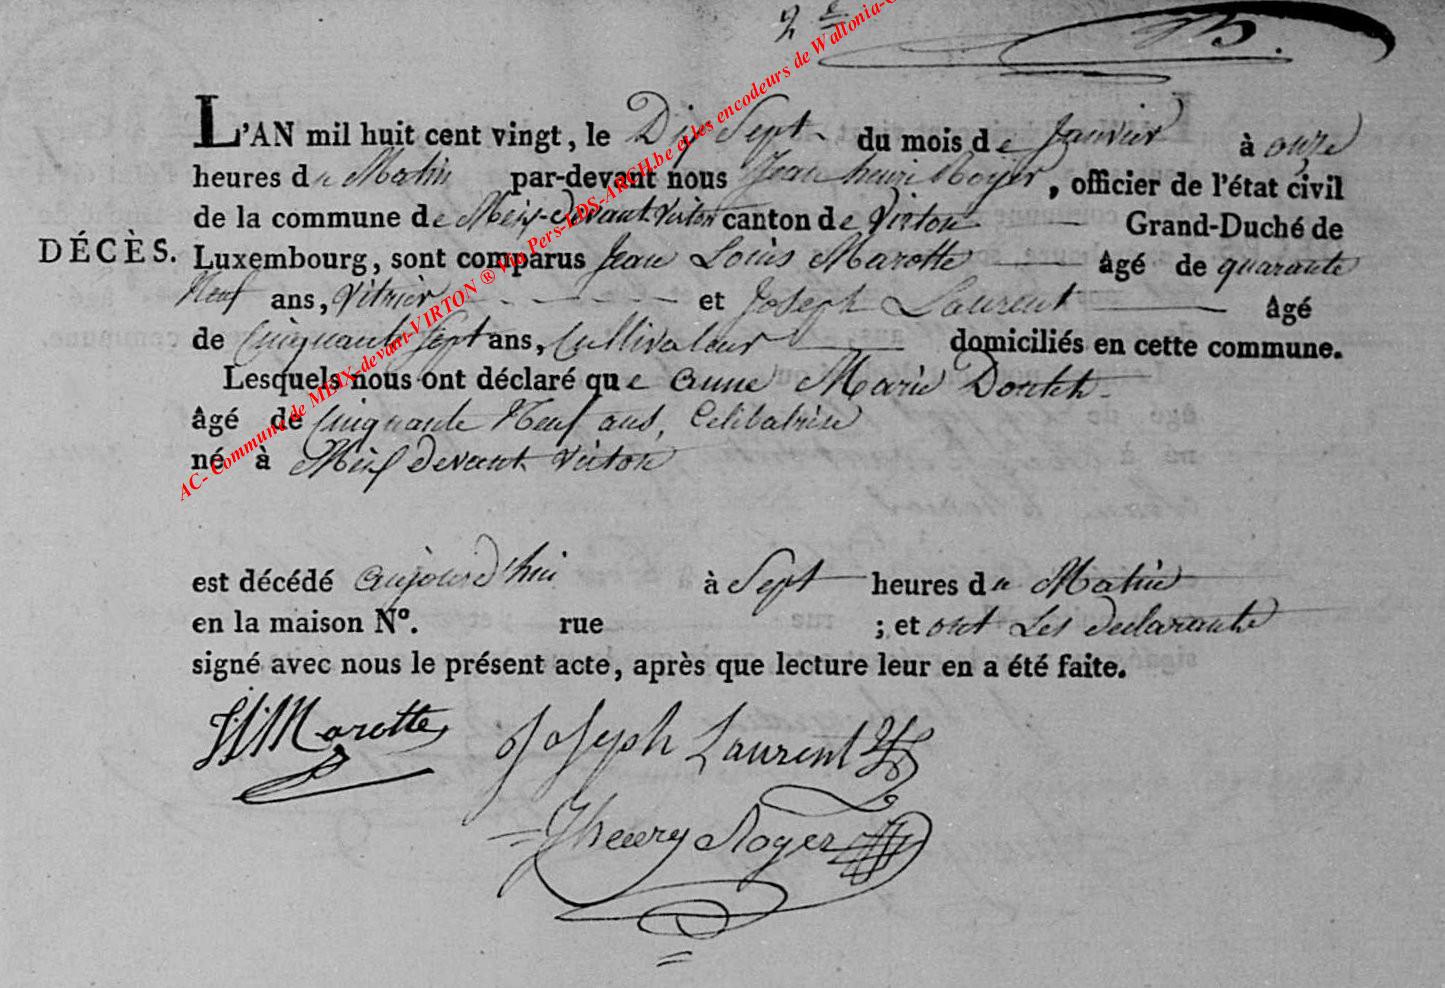 2e
L'AN mil huit cent vingt, le Dix Sept du mois de Janvier à onze
heures du Matin par-devant nous Jean henri Roger, officier de l'état civil
de la commune de Meix-devant Virton canton de Virton Grand-Duché de
DÉCÈS. Luxembourg, sont comparus Jean Louis Marotte âgé de quarante
Neuf ans, Vitrier et Joseph Laurent âgé
de Cinquante Sept ans, Cultivateur domiciliés en cette commune.
Lesquels nous ont déclaré que anne Marie
âgé de Cinquante Neuf ans, Celibataire
né à Meix devant Virton
est décédé aujourd'hui à Sept heures du Matin
en la maison N°. rue ; et ont Les declarants
signé avec nous le présent acte, après que lecture leur en a été faite.
Marotte Joseph Laurent
Jhenry Roger
AC- Commune de MEIX-devant-VIRTON ® Via Pers-LDS-ARCH.be et les encodeurs de Wallonia-